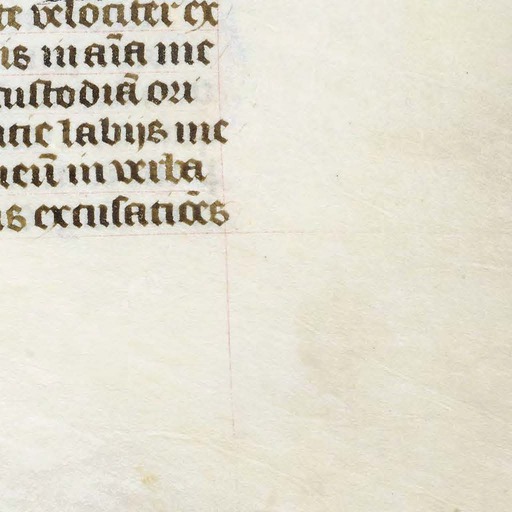 te velociter ex
is in aīa me
custodiā ori
ntie labijs me
meū in verba
as excusatiōes